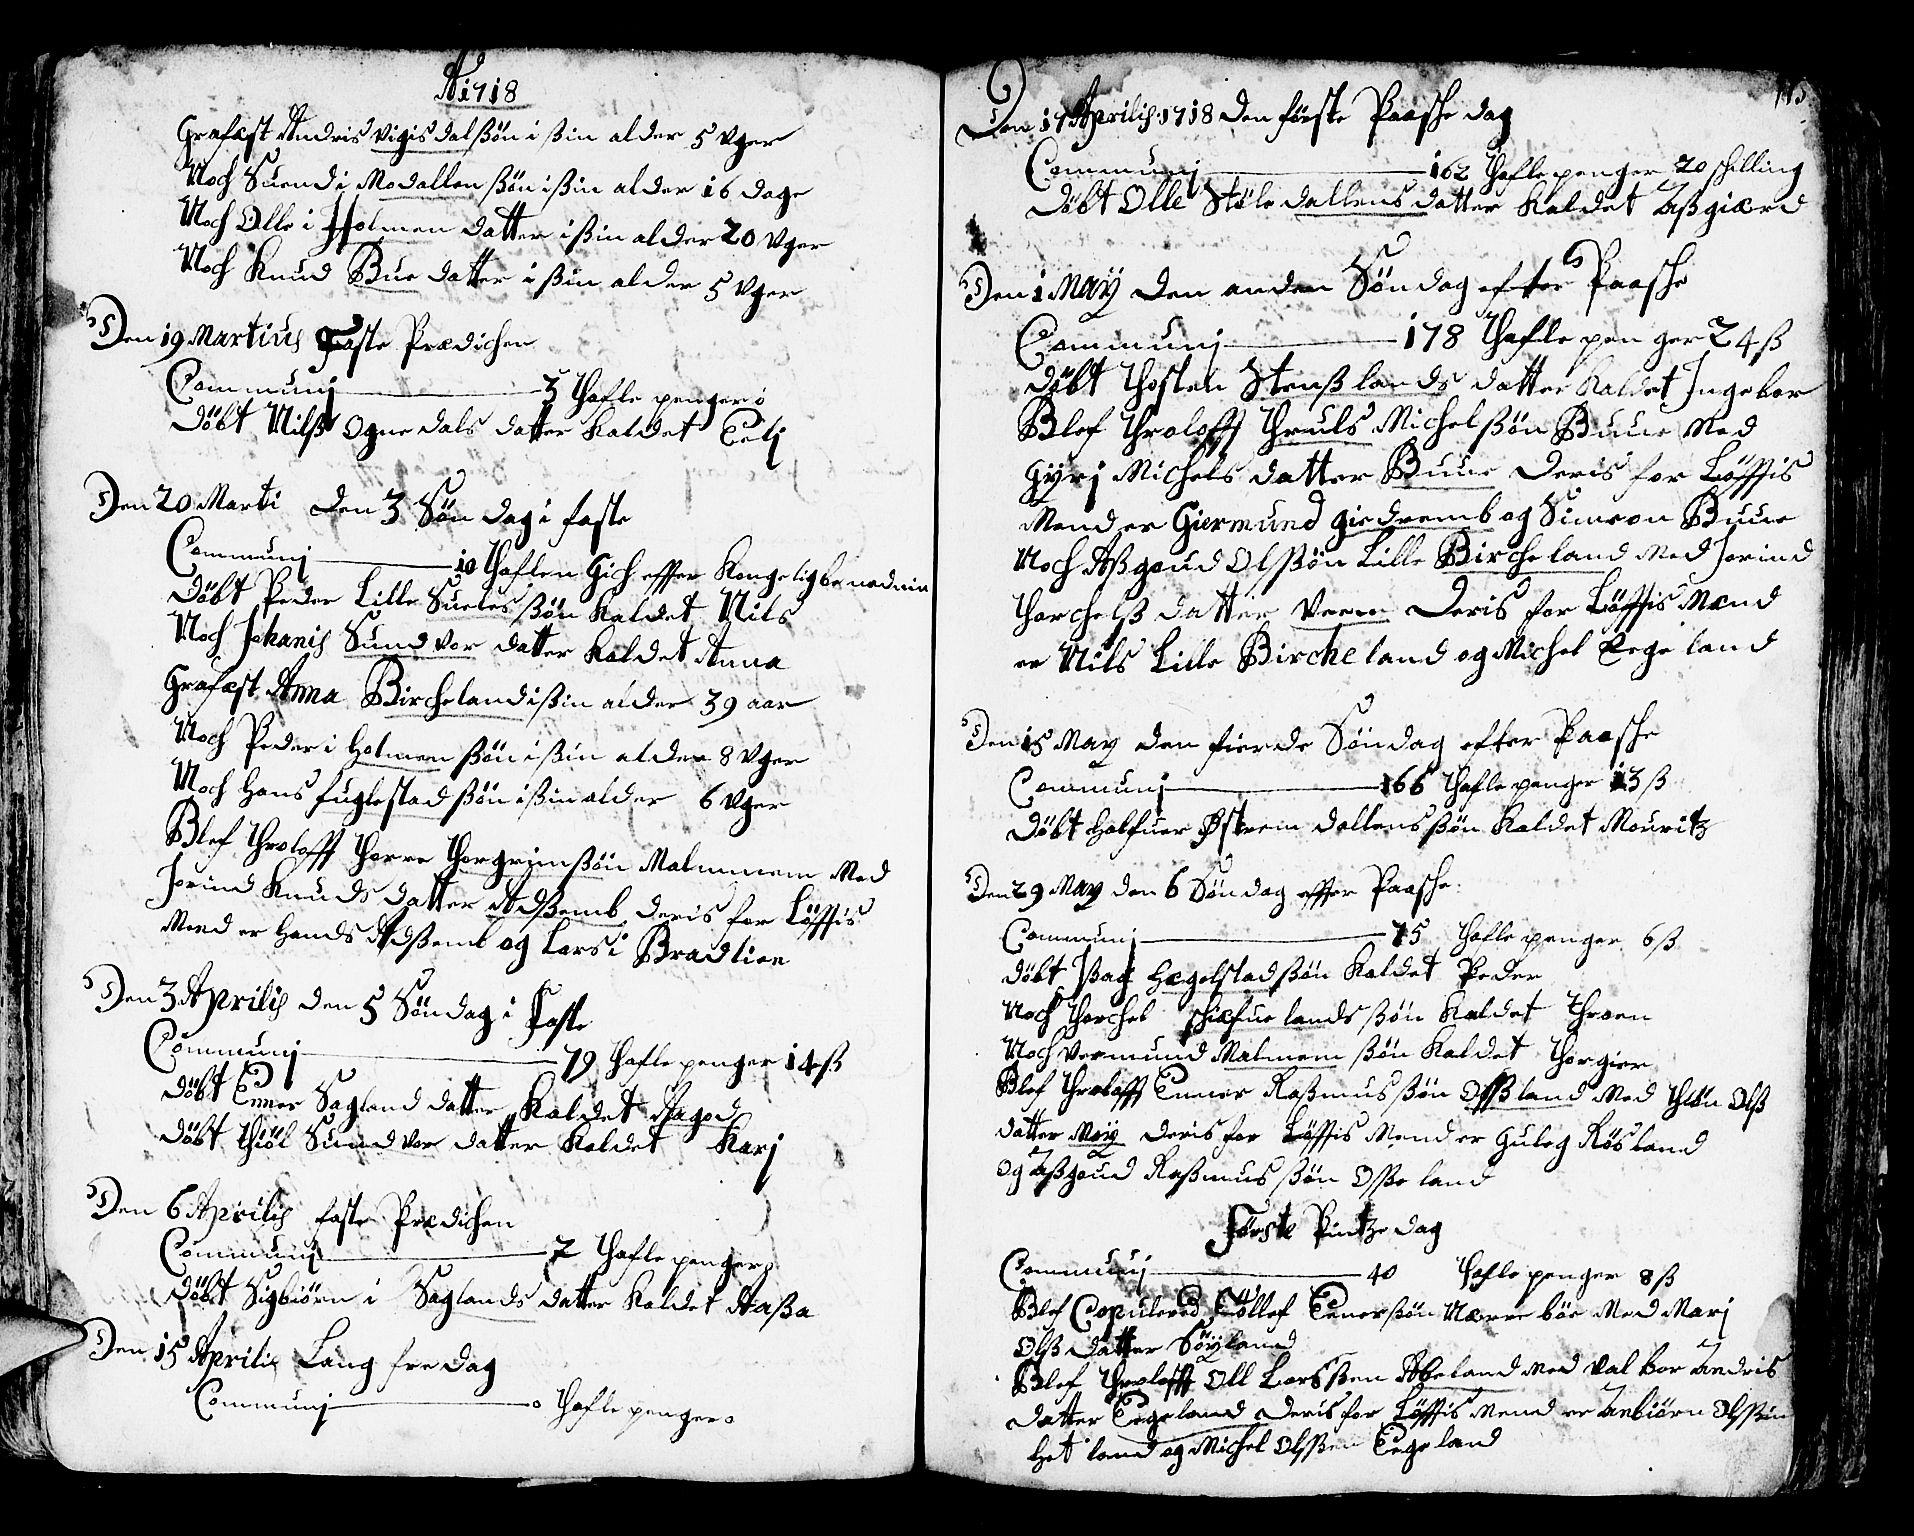 A 1718
Grafæst Andris Vigisdals ßøn i ßin alder 5 Uger
Noch Suend i Modallen ßøn i ßin alder 16 dage
Noch Olle i Holmen datter i ßin alder 20 Uger
Noch Knud Bue datter i ßin alder 5 Uger
Den 19 Martius Faste Prædichen
Communj 3 Thafle penger 0
Döbt Nilß Ognedals datter kaldet Eelj
Den 20 Marti den 3 Søndag i faste
Communj 10 Thaflen Gich effter Kongelig benadning
Döbt Peder Lille Sueles ßøn kaldet Nils
Noch Johanis Sundvor datter kaldet Anna
Grafæst Anna Bircheland i ßin alder 39 aar
Noch Peder i Holmen ßøn i ßin alder 8 Uger
Noch Hans fuglestad ßøn i ßin alder 6 Uger
Blef throloff Thorre Thorgrimßøn Malmmem Med
Jorind Knuds datter Adßemb deris for Löffis
Mend er Hands Adßemb og Lars i Bradlien
Den 3 Aprilis den 5 Søndag i Faste
Communj 79 Thafle penger 14 ß
Döbt Ener Sagland datter kaldet Aagod
Döbt Thiöl Sundvor datter kaldet Karj
Den 6 Aprilis faste Prædichen
Communj 7 Thafle penger
Döbt Sigbiørn i Saglands datter kaldet Aaßa
Den 15 Aprilis Lang fredag
Communj 0 Thafle penger 0
Den 17 Aprilis 1718 den første Paasche dag
Communj 162 Thafle penger 20 schilling
Döbt Olle Støle dallens datter kaldet Aaßgiærd
Den 1 May den anden Søndag efter Paasche
Communj 178 Thafle penger 24 ß
Döbt Thosten Stenßlands datter kaldet Ingebor
Blef throloff Thruls Michelßøn Buue Med
Gyrj Michels datter Buue Deris for Löffis
Mend er Giermund giedremb og Simon Buue
Noch Aßgoud Olßøn Lille Bircheland Med Jorind
Thorchelß datter Veen Deris for Löffis Mend
er Nils Lille Bircheland og Michel Eegeland
Den 15 May den fierde Søndag efter Paasche
Communj 166 Thafle penger 13 ß
Döbt Halfuer Østrem dallens ßøn kaldet Mouritz
Den 29 May den 6 Søndag effter Paasche
Communj 75 Thafle penger 6 ß
Döbt Jßag Hægelstad ßøn kaldet Peder
Noch Thorchel schiefuelands ßøn kaldet Throen
Noch Vermund Malmem ßøn kaldet Thorgier
Blef throloff Enner Raßmus ßøn Oßland Med Olß
datter Möy Deris for Löffis Mend er Guleg Rösland
Og Aaßgoud Raßmus ßøn Oßeland
Første Pintze dag
Communj 40 Thafle penger 8 ß
Blef Copulered Töllef Enerßøn Nærre böe Med Marj
Olß datter Söyland
Blef throloff Oll Larsßen Abeland Med Valbor Andris
datter Eegeland Deris for Löffis Mend er Aanbiörn Olßøn
Hetland og Michel Olßen Eegeland